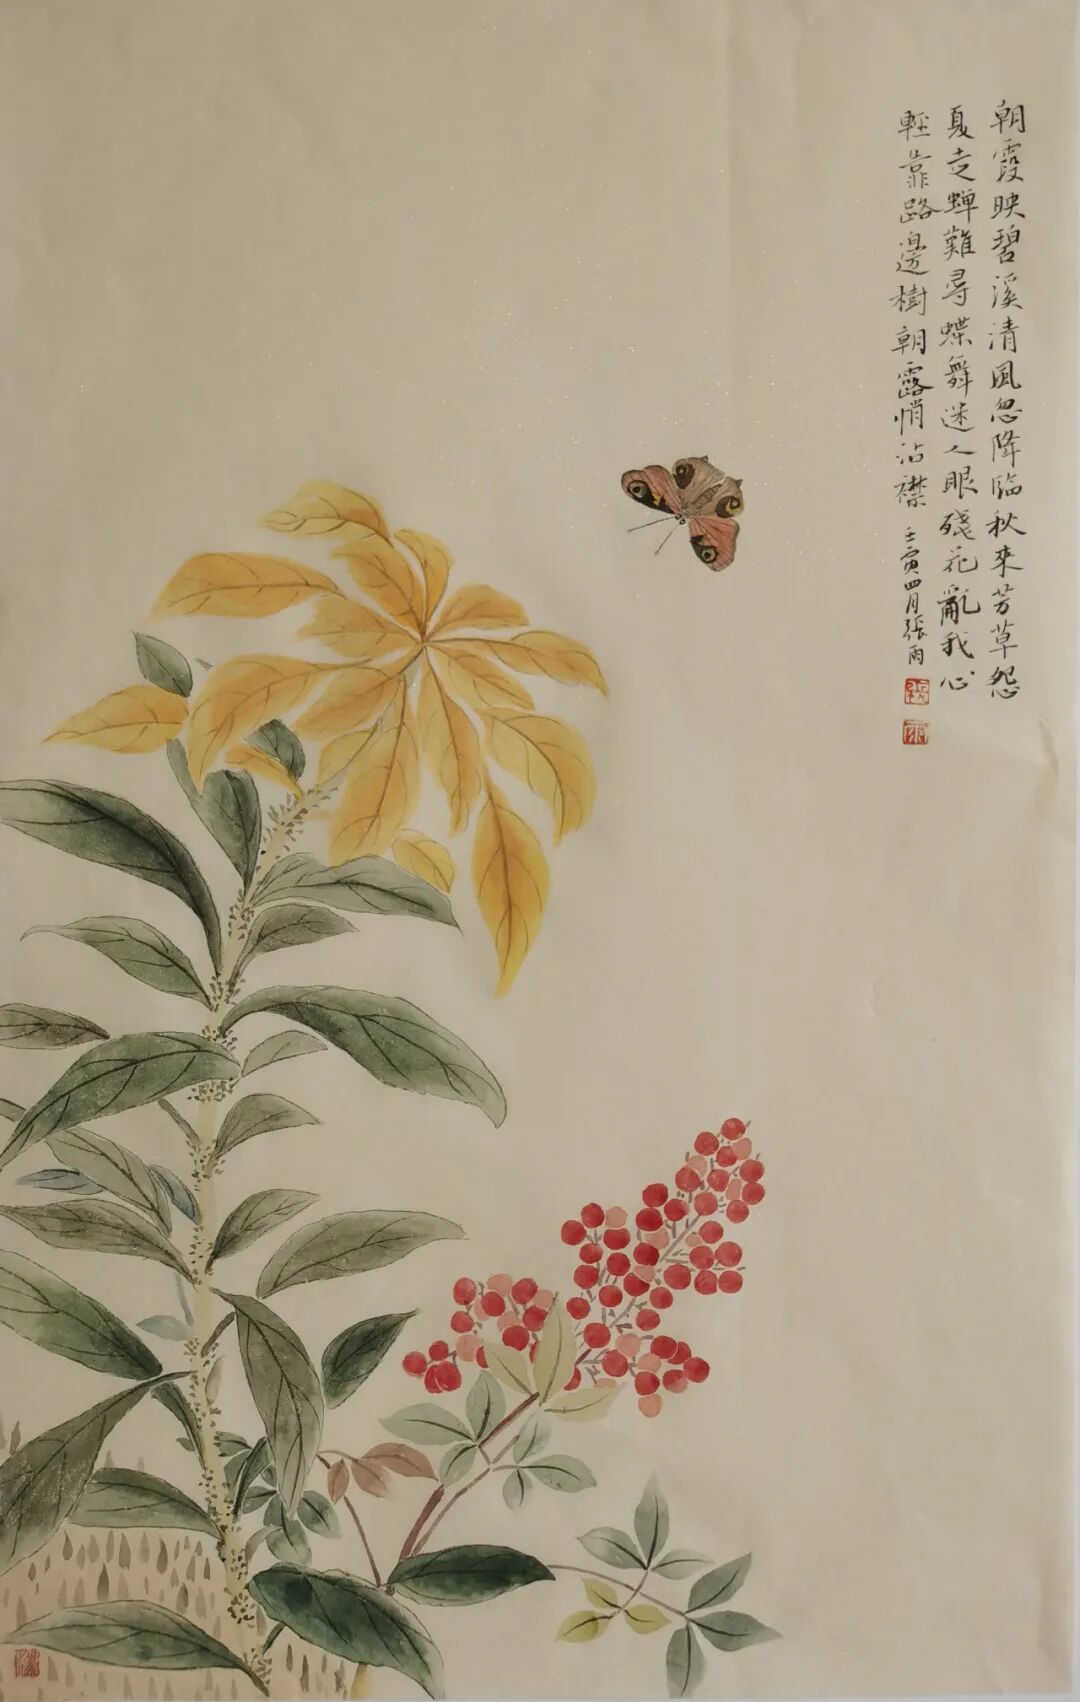 朝霞映碧溪清風忽降臨秋來芳草怨
夏走蟬難尋蝶舞迷人眼殘花亂我心
輕靠路邊樹朝露悄沾襟 壬寅四月張雨
張
雨